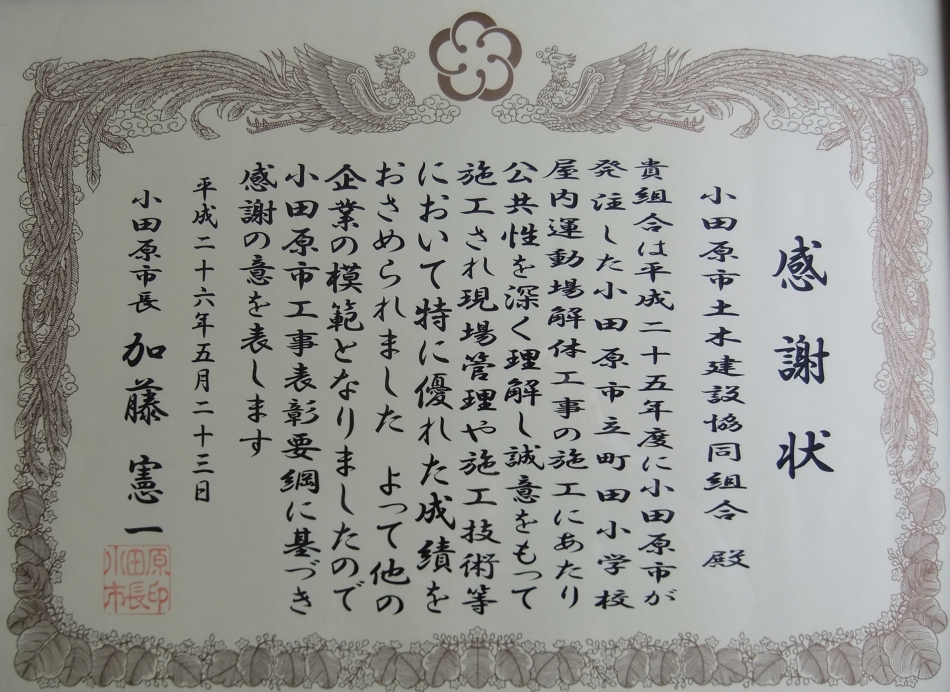 感謝状
小田原市土木建設協同組合 殿
貴組合は平成二十五年度に小田原市が
発注した小田原市立町田小学校
屋内運動場解体工事の施工にあたり
公共性を深く理解し誠意をもって
施工され現場管理や施工技術等
において特に優れた成績を
おさめられました よって他の
企業の模範となりましたので
小田原市工事表彰要綱に基づき
感謝の意を表します
平成二十六年五月二十三日
小田原市長 加藤 憲一
原印
田長
小市